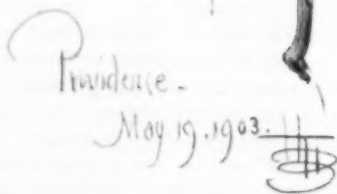 Providence -
May 19, 1903.